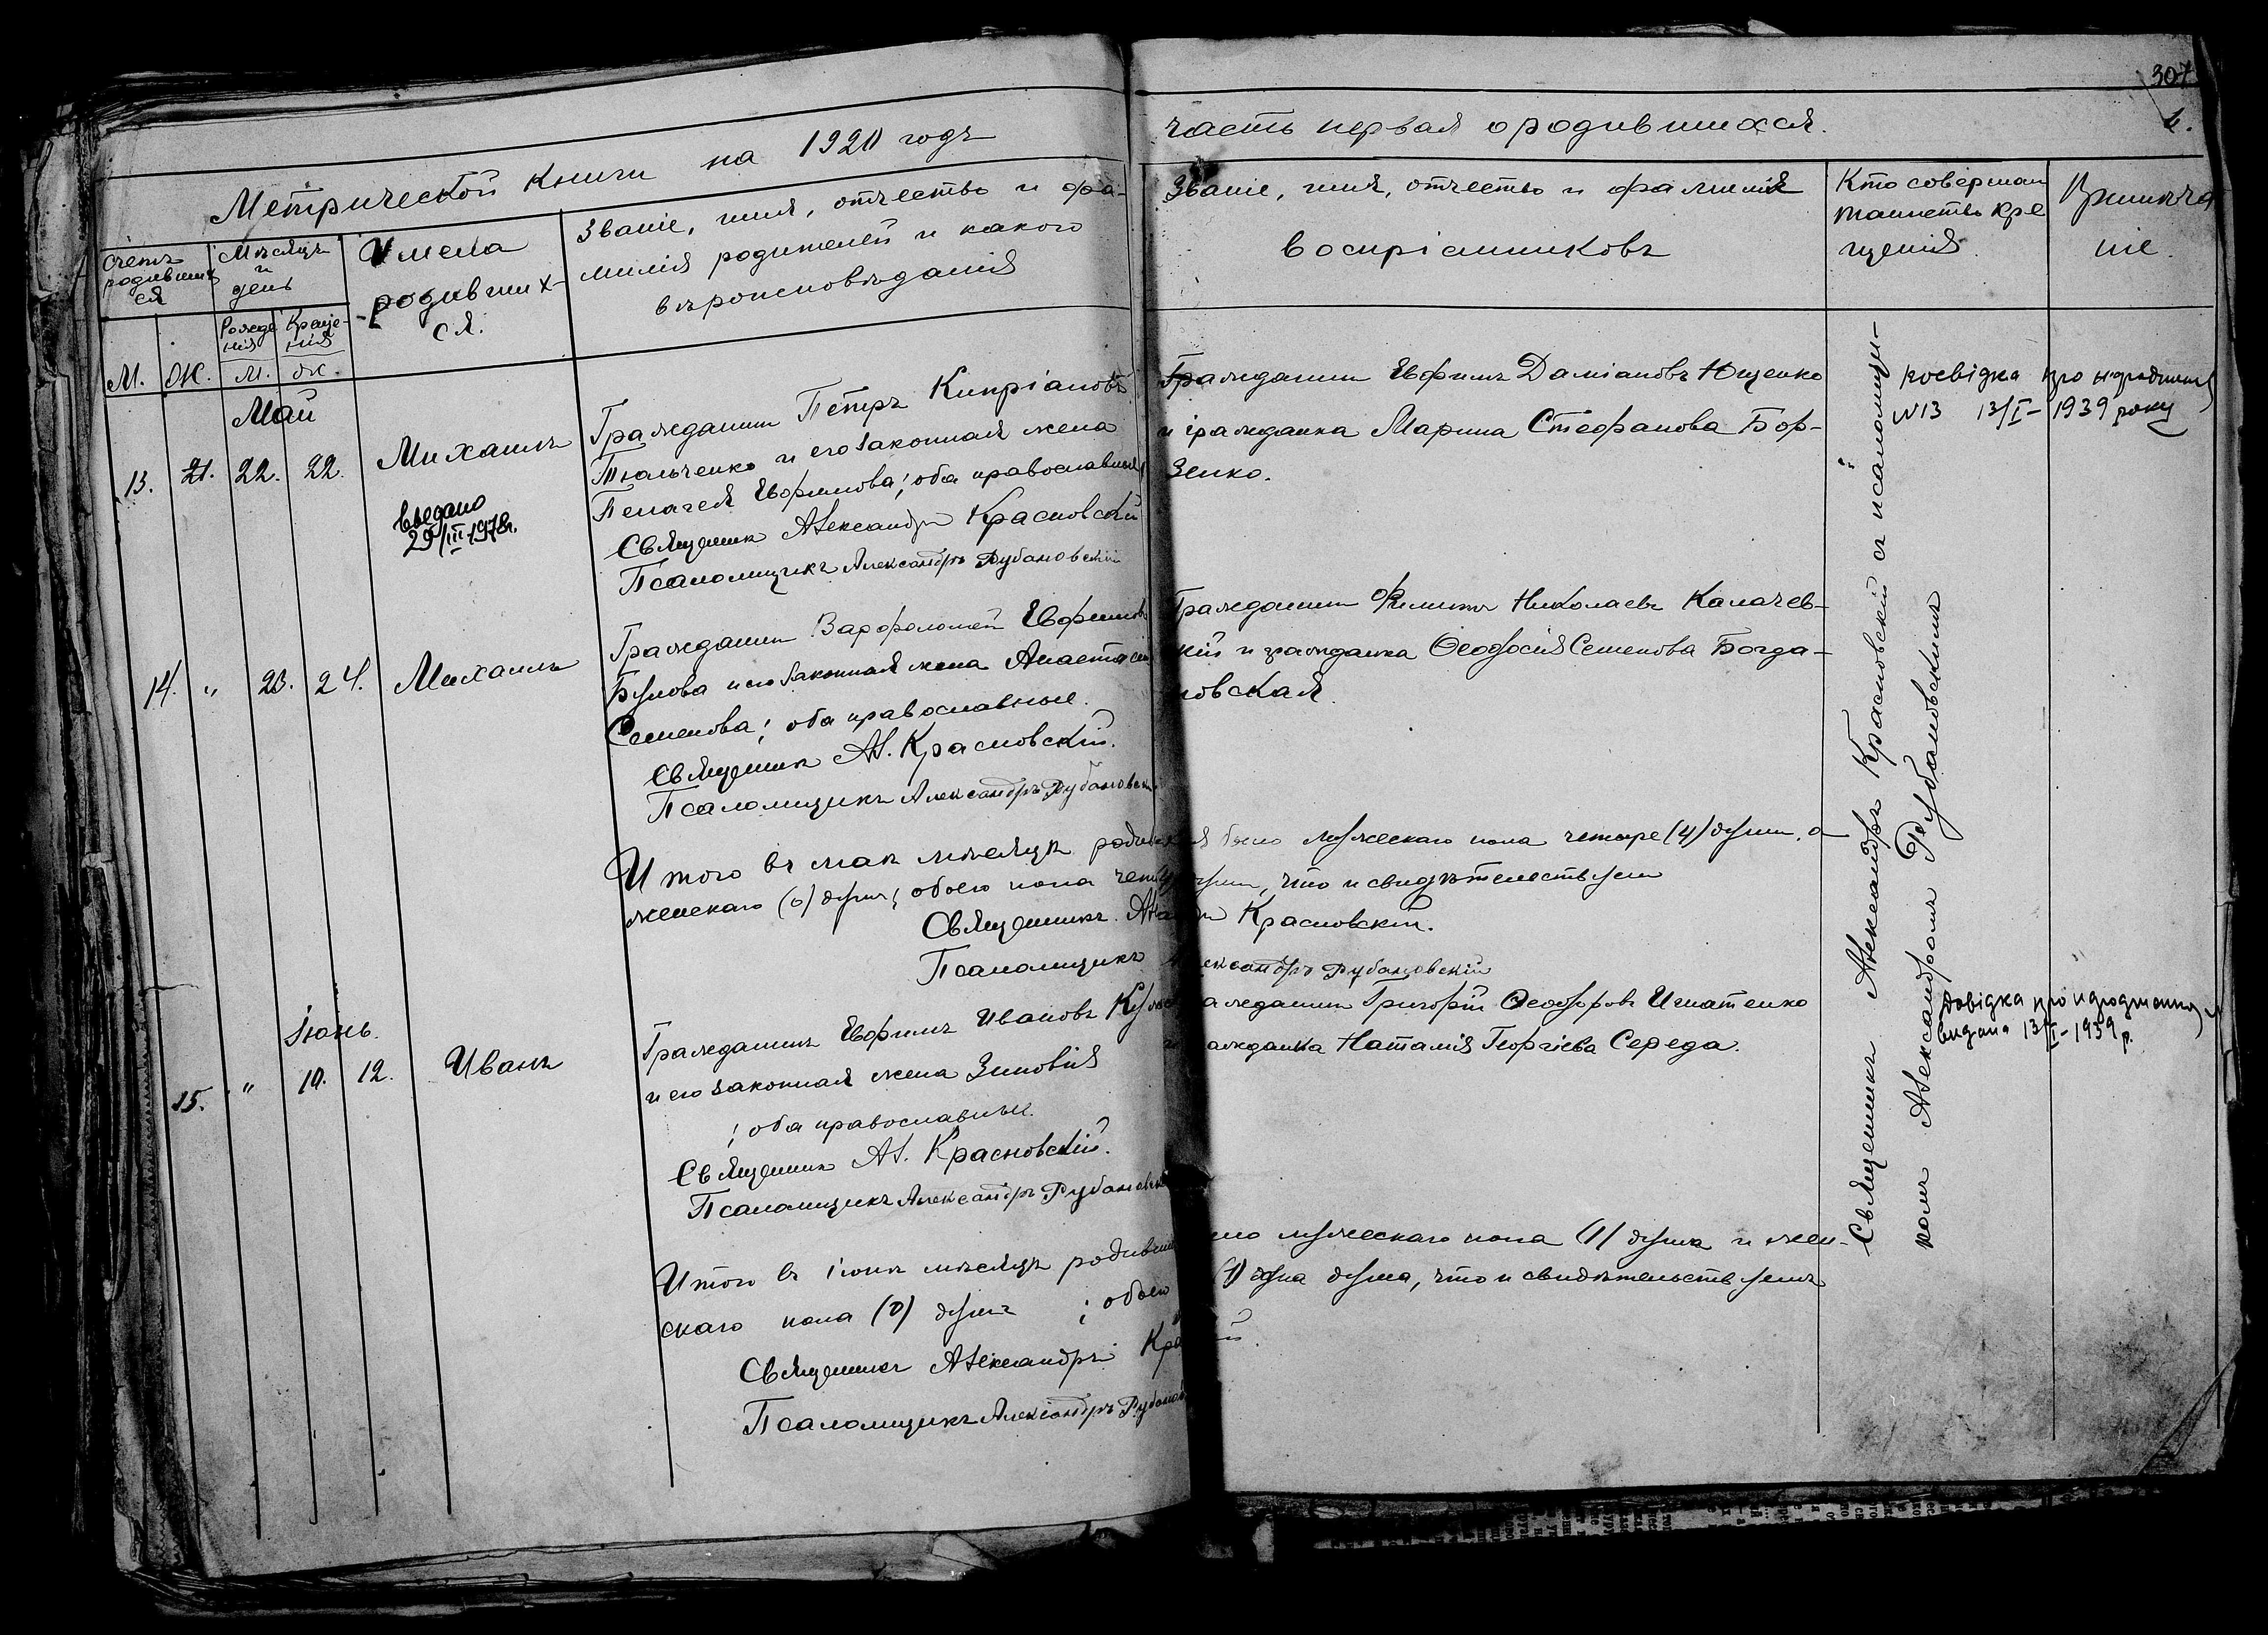 307
Метрической книги на 1920 годъ
часть первая о родившихся.
Счетъ родившихся
Мѣсяцъ и день
Имена родившихся.
Званіе, имя, отчество и фа-
милія родителей и какого
вѣроисповѣданія
Званіе, имя, отчество и фамилія
воспріемниковъ
Кто совершал
таинство кре
щенія.
Примѣча
ніе.
М. Ж.
Рожде
нія
Креще-
нія
М. Ж.
Май
13. 21. 22. 22. Михаилъ
29/III 1978г.
Гражданинъ Петръ Кипріановъ
Тюльченко и его законная жена
Пелагея Евфимова; оба православные
Священник Александръ Красновскій
Псаломщикъ Александръ Рубановскій
Гражданин Евфимъ Даміановъ Ющенко
и гражданка Марина Стефанова Бор-
зенко.
про народження
№13 13/I-1939 року
14. " 23. 24. Михаилъ
Гражданин Варфоломей Евфимовъ
и его законная жена Анастасія
Семенова; оба православные.
Священник Ал. Красновскій.
Псаломщикъ Александръ Рубановскій
Гражданин Филиппъ Николаевъ Калачев-
скій и гражданка Ѳеодосія Семенова Богда-
новская.
Итого въ маѣ мѣсяцѣ родившихся было мужескаго пола четыре (4) души, а
женскаго (0) душъ; обоего пола четыре души, что и свидѣтельствуем
Священникъ Александръ Красновскій.
Псаломщикъ Александръ Рубановскій
Іюнь.
15. " 10. 12. Иванъ
Гражданинъ Евфимъ Ивановъ
и его законная жена Зиновія
; оба православные.
Священник Ал. Красновскій.
Псаломщикъ Александръ Рубановскій
Гражданин Григорій Ѳеодоровъ Игнатенко
и гражданка Наталія Георгіева Середа.
Довідка про народження
видана 13/I-1939 р.
Итого въ іюнѣ мѣсяцѣ родившихся было мужескаго пола (1) душа и жен-
скаго пола (0) душъ ; обоего (1) одна душа, что и свидѣтельствуемъ
Священникъ Александръ Красновскій.
Псаломщикъ Александръ Рубановскій
Священникъ Александръ Красновскій съ псаломщи-
комъ Александромъ Рубановскимъ